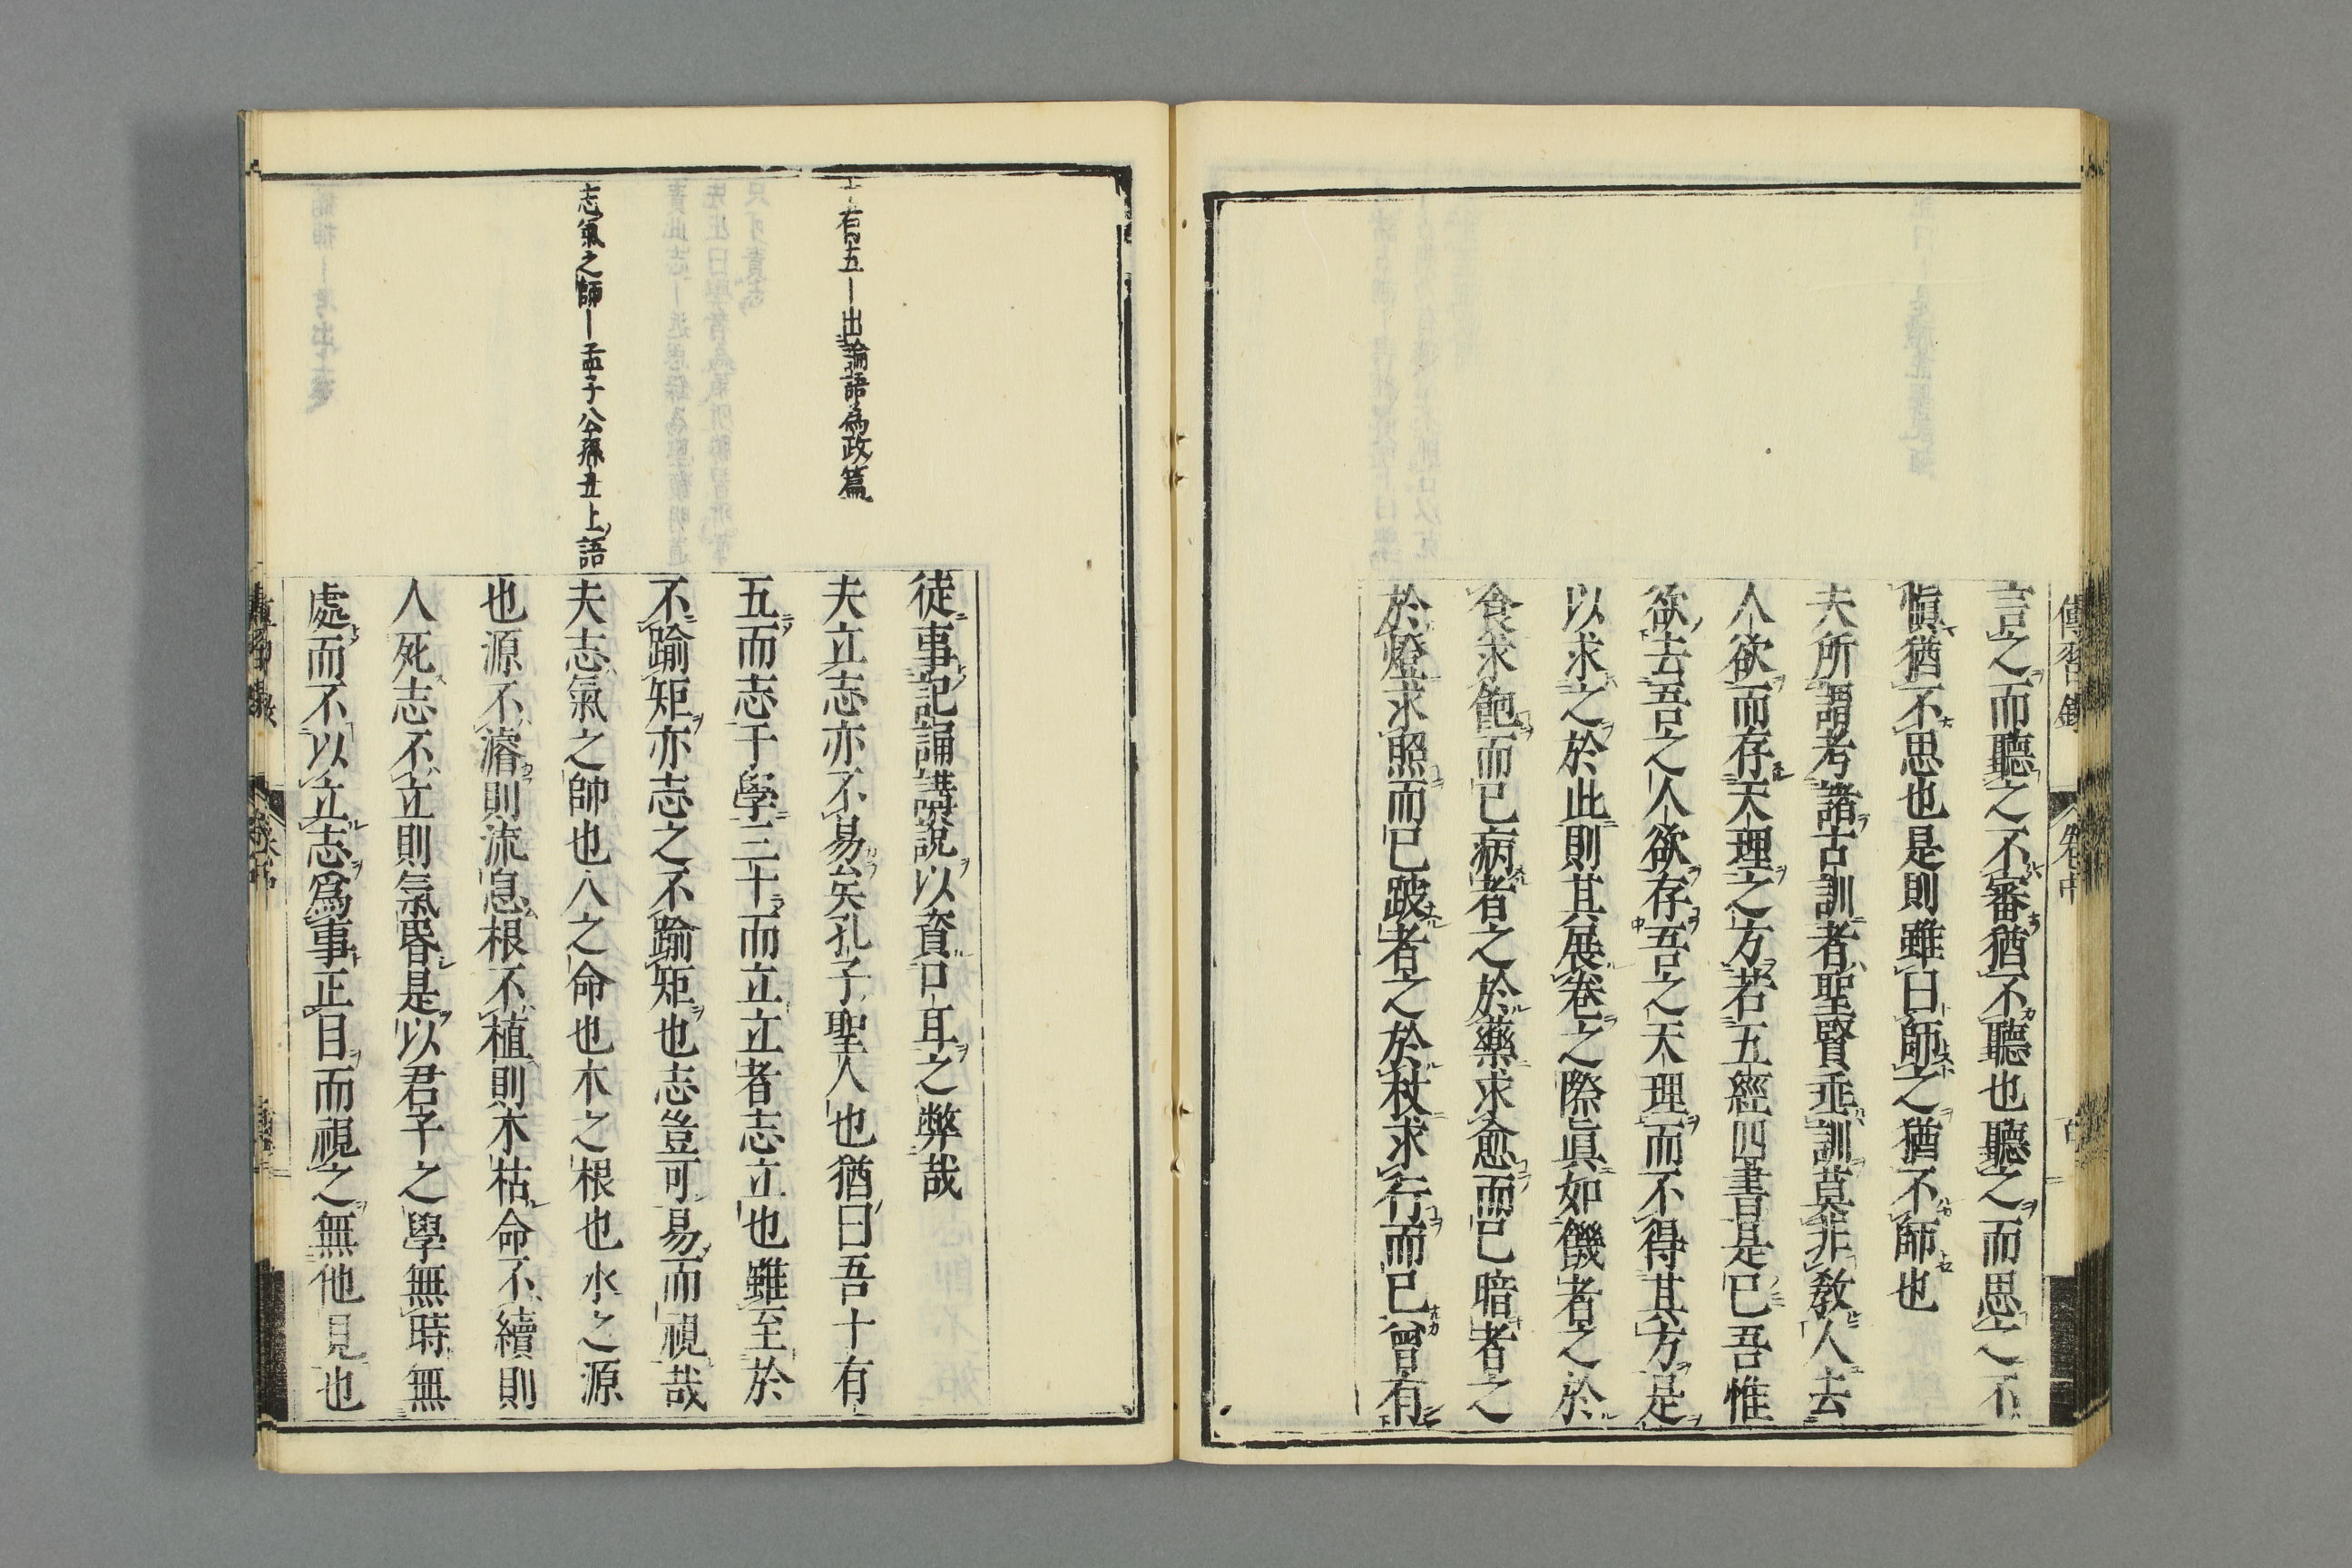 傳習錄 卷中
言之而聽之不審猶不聽也聽之而思之不
愼猶不思也是則雖曰師之猶不師也
夫所謂考諸古訓者聖賢垂訓莫非敎人去
人欲而存天理之方若五經四書是已吾惟
欲去吾之人欲存吾之天理而不得其方是
以求之於此則其展卷之際眞如饑者之於
食求飽而已病者之於藥求愈而已暗者之
於燈求照而已跛者之於杖求行而已曾有
徒事記誦講說以資口耳之弊哉
十有五―出論語為政篇
夫立志亦不易矣孔子聖人也猶曰吾十有
五而志于學三十而立立者志立也雖至於
不踰矩亦志之不踰矩也志豈可易而視哉
志氣之帥―孟子公孫丑上語
夫志氣之帥也人之命也木之根也水之源
也源不濬則流息根不植則木枯命不續則
人死志不立則氣昏是以君子之學無時無
處而不以立志爲事正目而視之無他見也